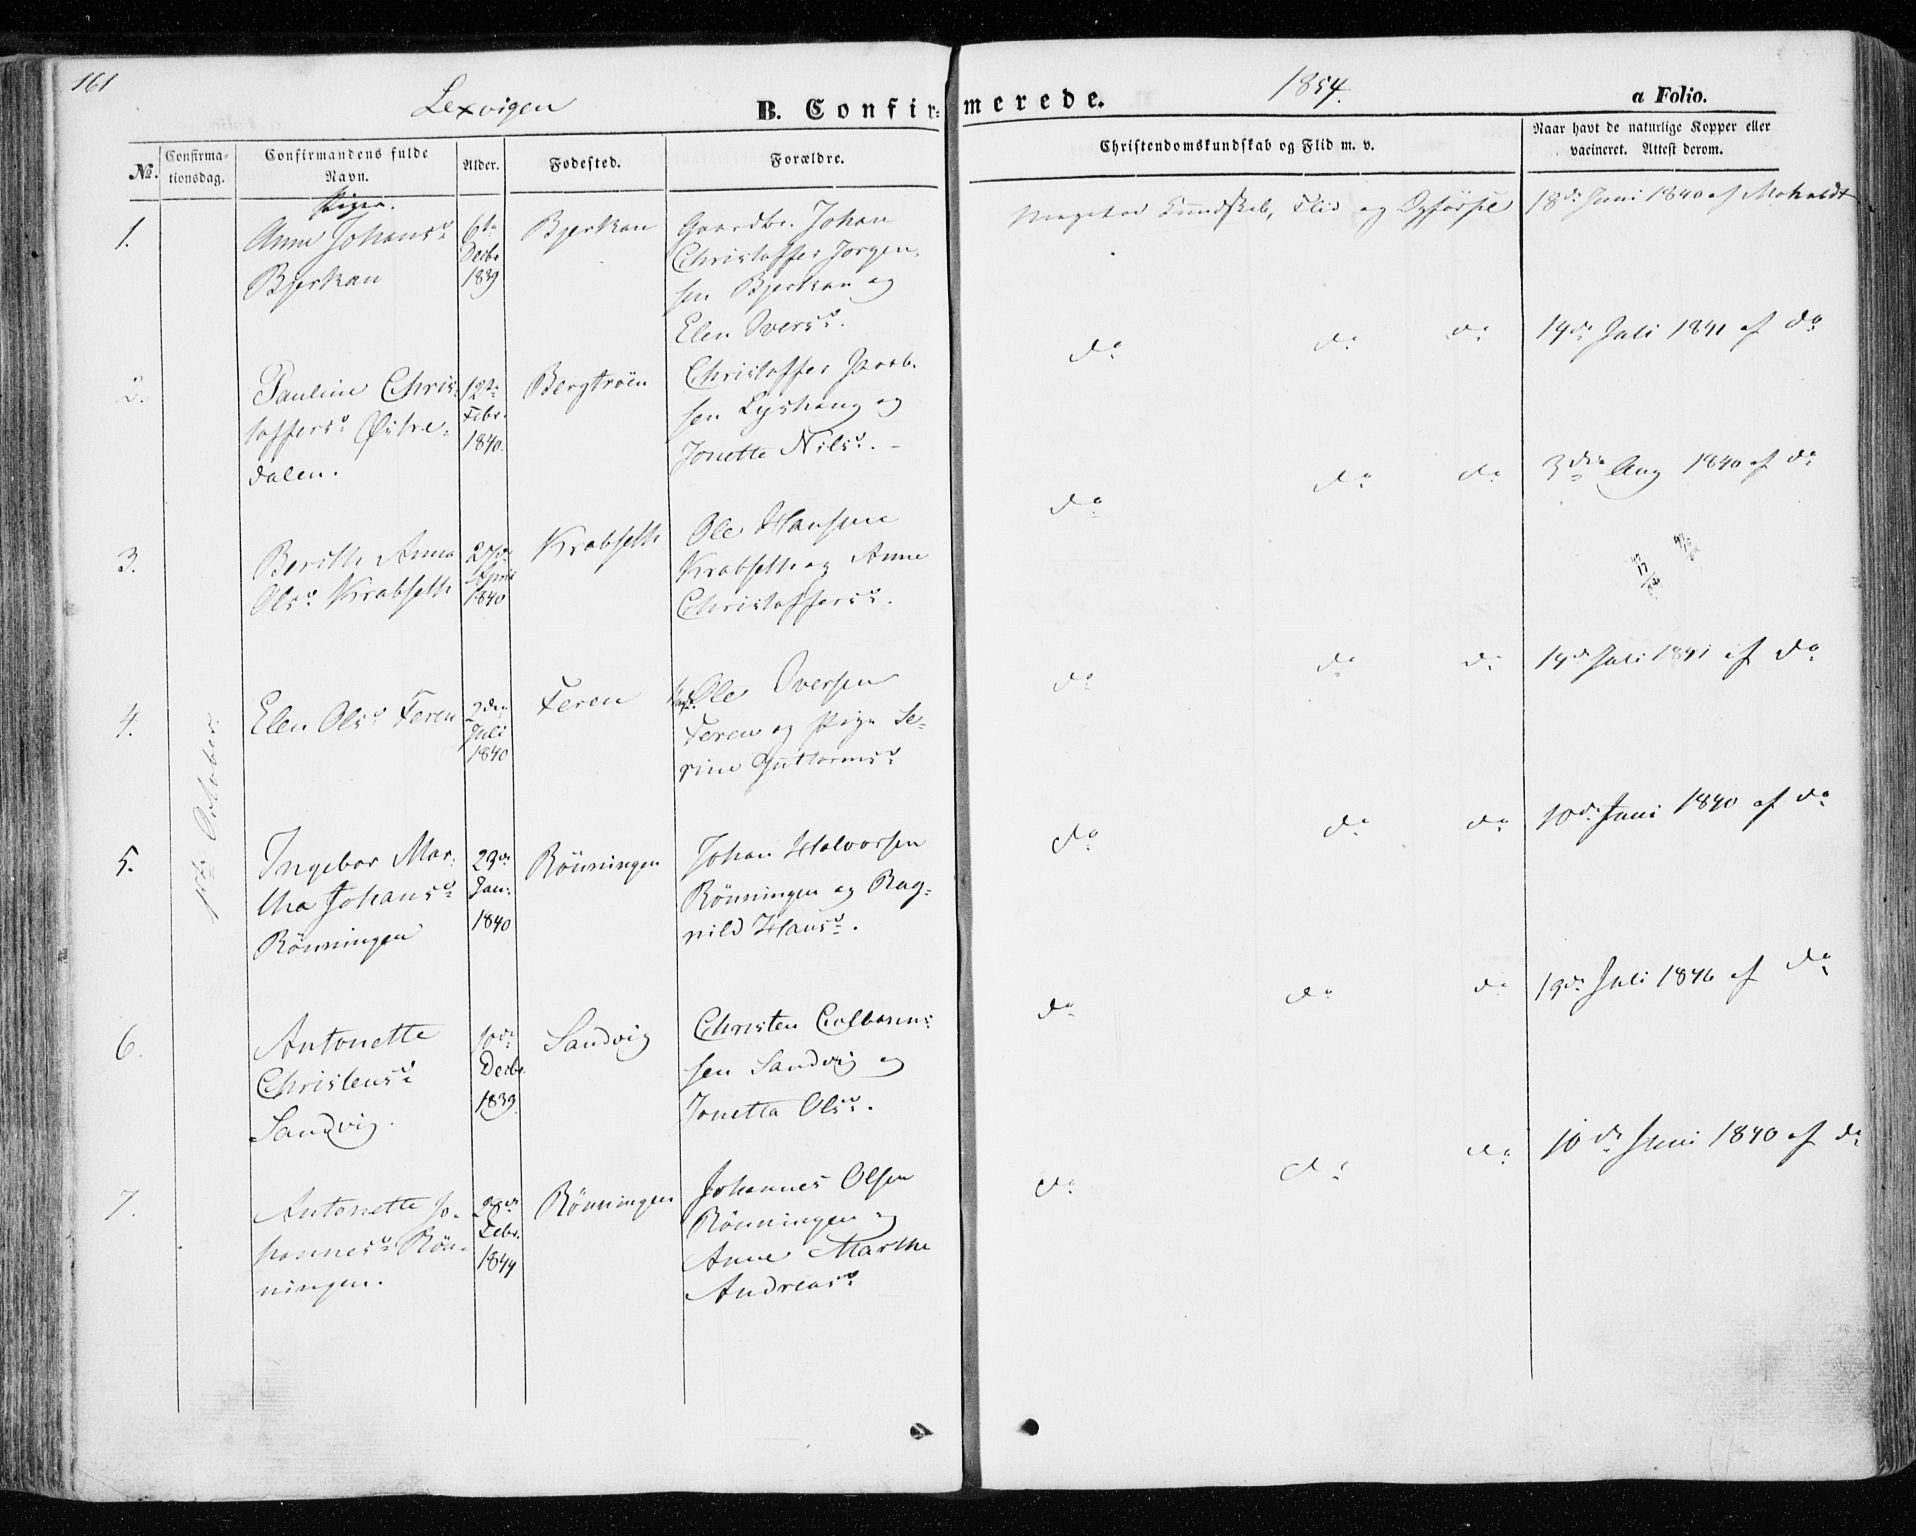 161
Lexvigen
B. Confirmerede.
1854.
a Folio.
No.
Confirma-
tionsdag.
Confirmandens fulde
Navn.
Alder.
Fødested.
Forældre.
Christendomskundskab og Flid m. v.
Naar havt de naturlige Kopper eller
vacineret. Attest derom.
Piger.
1ste October
1.
Anne Johansd.
Bjerkan
6te
Decbr
1839
Bjerkan
Gaardbr. Johan
Christoffer Jørgen-
sen Bjerkan og
Elen Iversd.
Meget god Kundskab, Flid og Opførsel
18de Juni 1840 af Moholdt
2.
Pauline Chris-
toffersd. Østre-
dalen.
12te
Febr.
1840.
Bergtröen
Christoffer Jacob-
sen Lyshaug og
Jonette Nilsd. -
do do do
14de Juli 1841 af do
3.
Berith Anna
Olsd. Krabseth
27de
April
1840
Krabseth
Ole Hansen
Krabseth og Anne
Christoffersd.
do do do
3die Aug 1840 af do
4.
Elen Olsd. Feren
2den
Juli
1840
Feren
Ole Iversen
Feren og Pige Se-
rine Guttormsd.
do do do
14de Juli 1841 af do
5.
Ingebor Mar-
tha Johansd.
Rönningen
23de
Jan.
1840
Rönningen
Johan Halvorsen
Rönningen og Rag-
nild Hansd.
do do do
10de Juni 1840 af do
6.
Antonette
Christensd.
Sandvig.
10de
Decbr.
1839
Sandvig
Christen Colbørns-
sen Sandvig og
Jonetta Olsd.
do do do
19de Juli 1846 af do
7.
Antonette Jo-
hannesd. Rön-
ningen.
28de
Febr.
Rönningen
Johannes Olsen
Rönningen og
Anne Marthe
Andreasd.
do do do
10de Juni 1840 af do